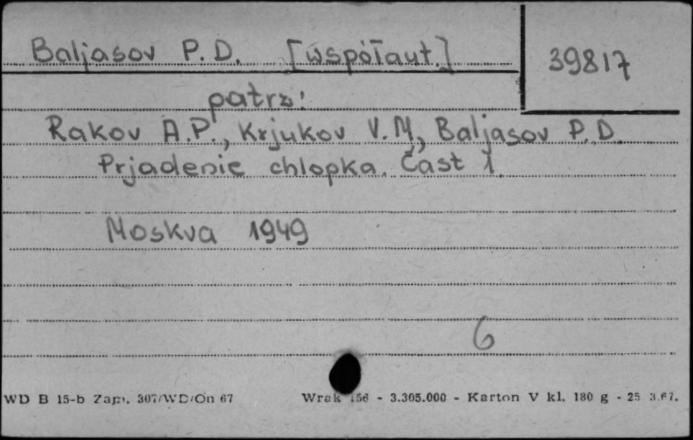 Baljasov P.D. [współaut.]
39817
patrz:
Rakov A.P., Krjukov V.M., Baljasov P.D.
Prjadenie chlopka. Čast 1.
Moskva 1949
6
WD B 15-b Zam. 307/WD/On 67 Wrak 156 - 3.305.000 - Karton V kl. 180 g - 25 3.67.